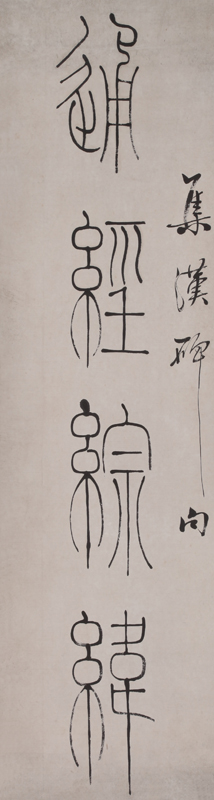 集漢碑句
通經綜緯